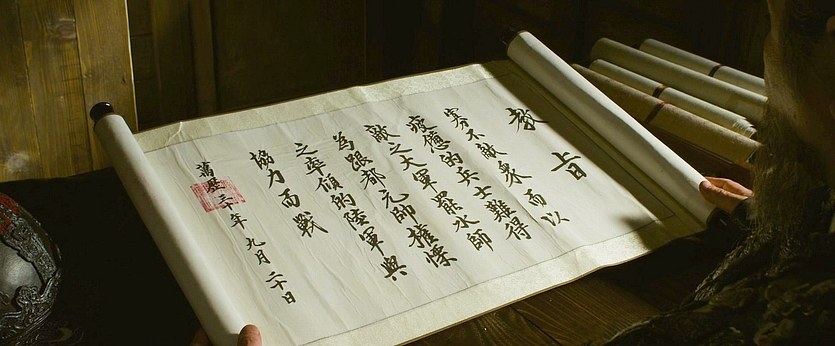 教旨
寡不敵衆而以
疲憊的兵士難得
敵之大軍罷水師
為跟都元帥權慄
之率傾的陸軍與
協力而戰
萬歷二十年九月二十日